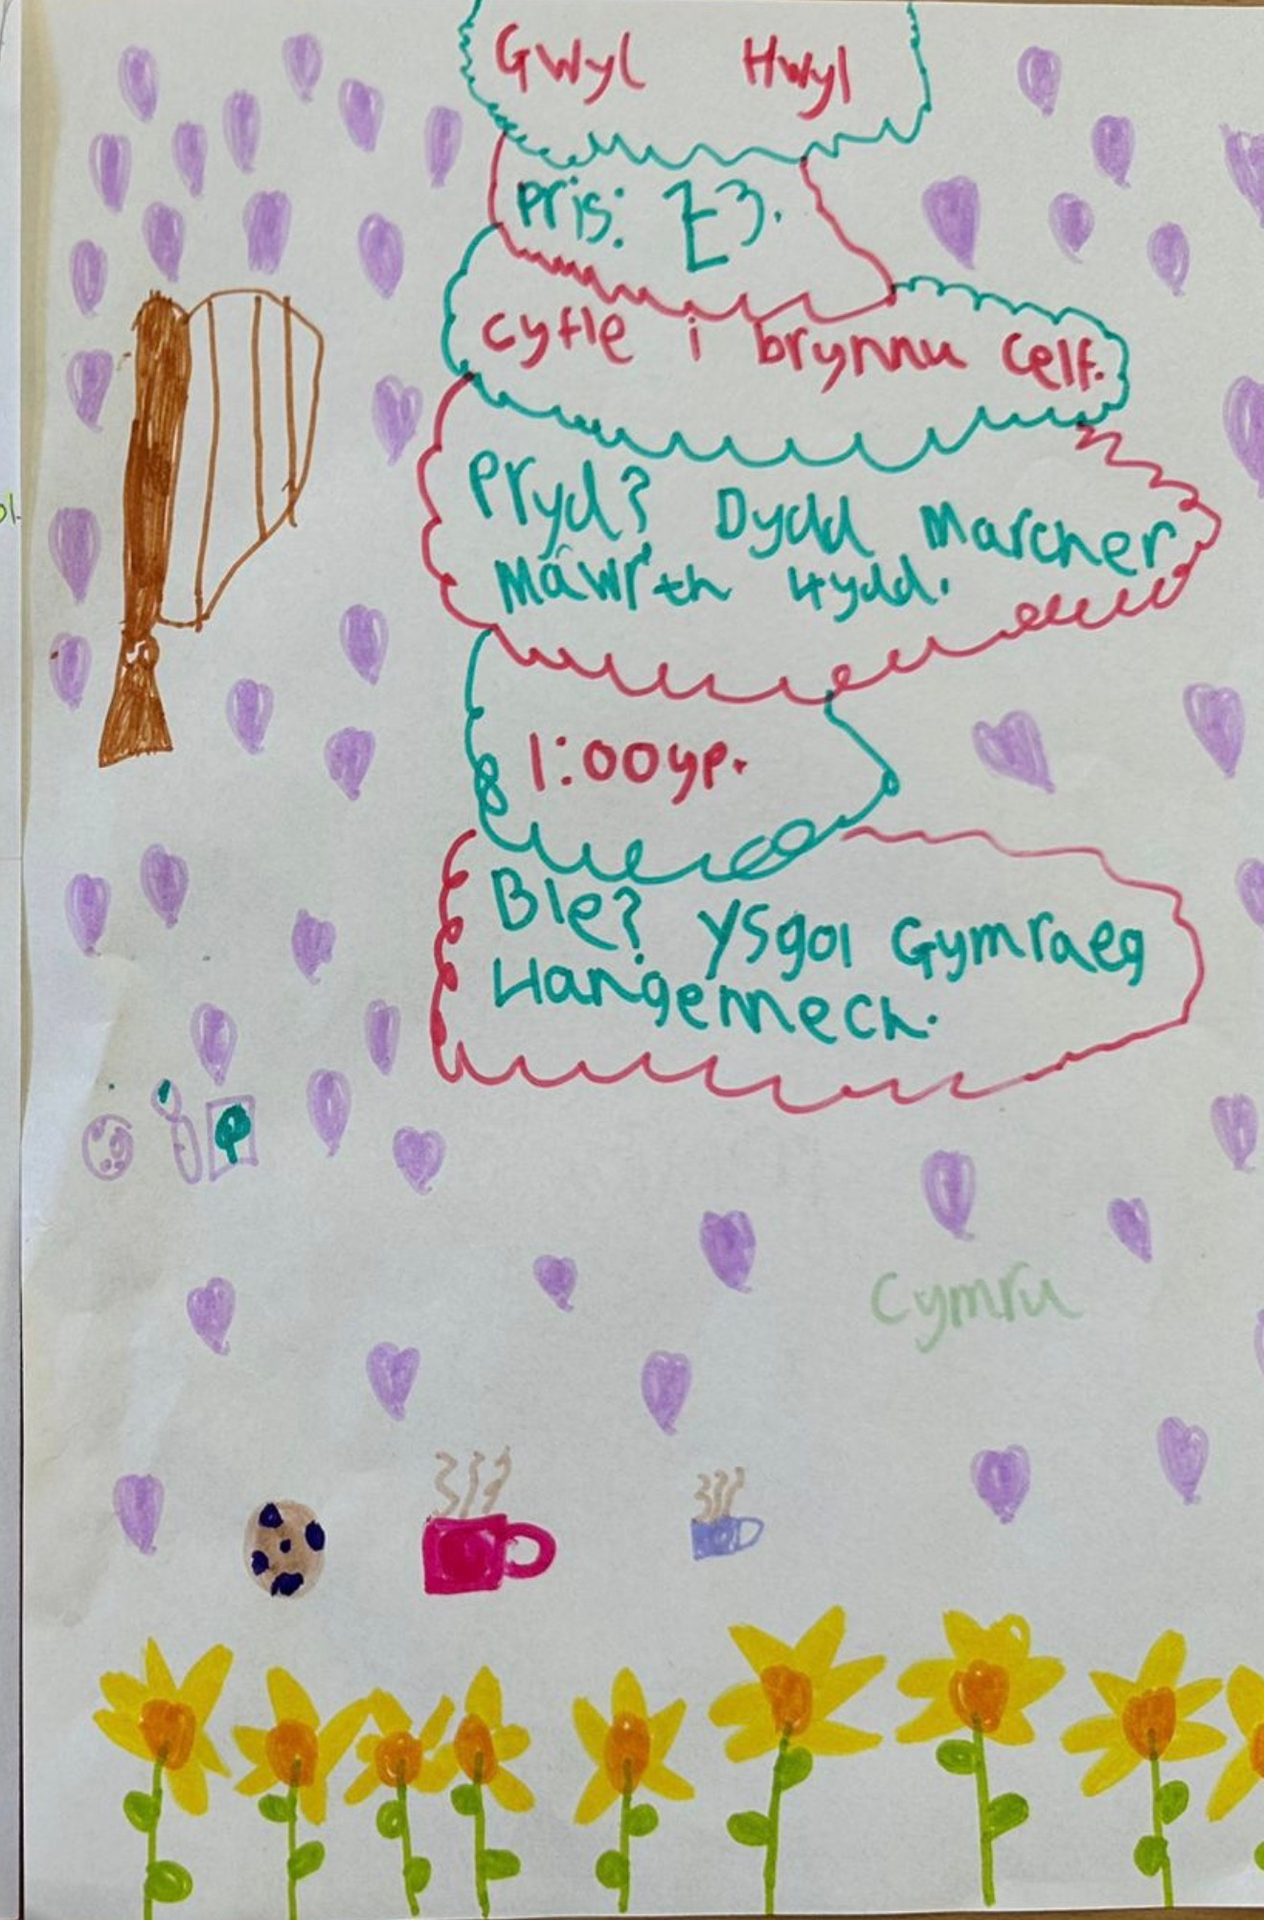 Gwyl Hwyl
Pris: £3.
cyfle i brynnu celf.
Pryd? Dydd Marcher
Mawrth 4ydd.
1:00yp.
Ble? Ysgol Gymraeg
Llangennech.
Cymru